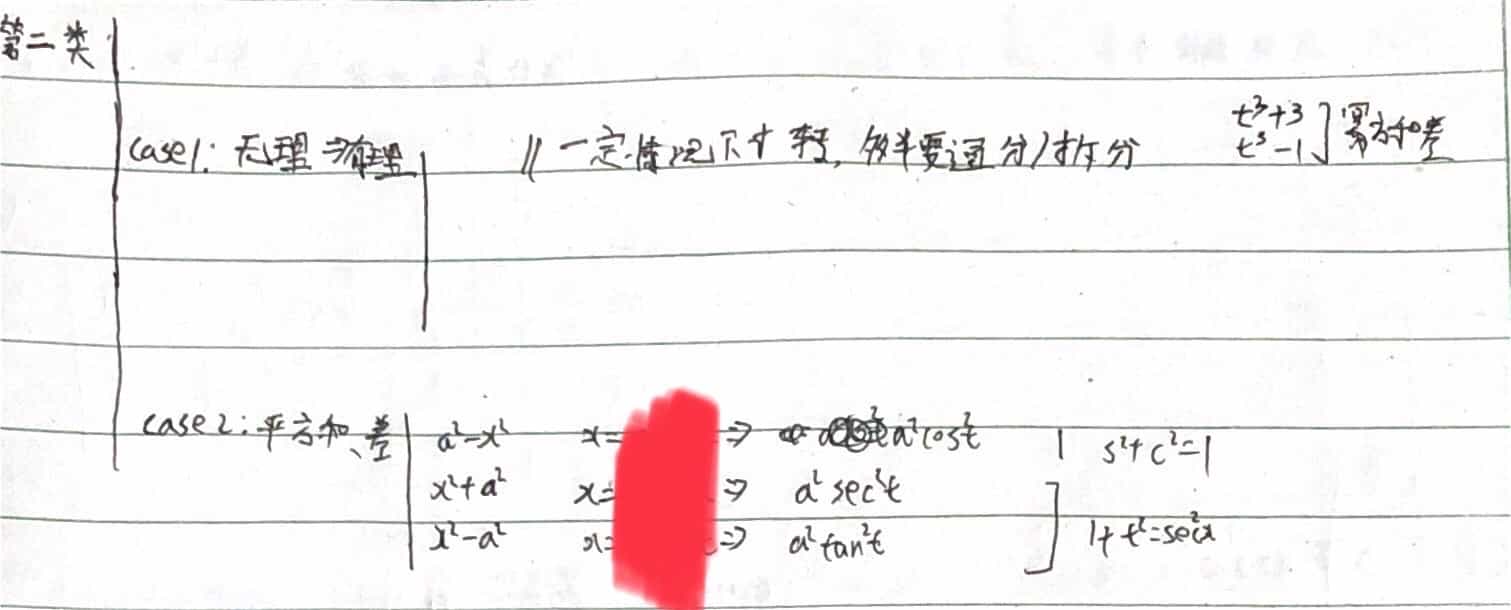 第二类
case1: 无理⇒有理 // 一定情况下才转, 多半要通分/拆分 t³+3 t³-1 ] 幂方和差
case2: 平方和、差 a²-x² x= ⇒ a²cos²t s²+c²=1
x²+a² x= ⇒ a²sec²t
x²-a² x= ⇒ a²tan²t ] 1+t²=sec²x